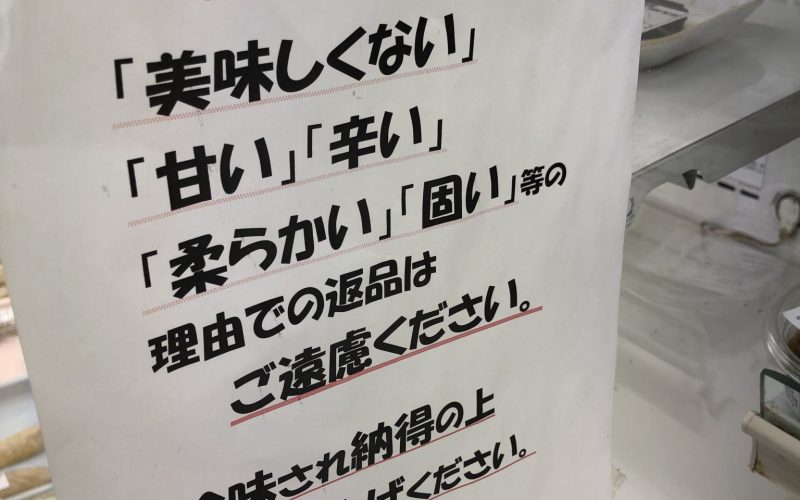 「美味しくない」
「甘い」「辛い」
「柔らかい」「固い」等の
理由での返品は
ご遠慮ください。
味され納得の上
ください。